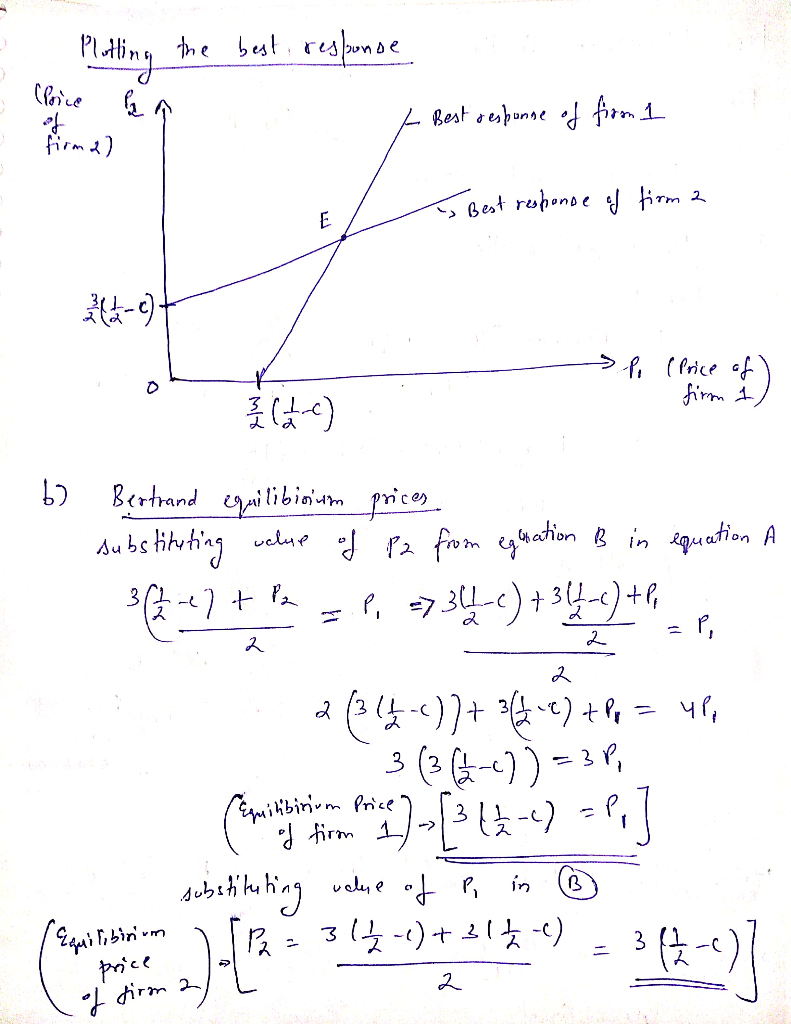 Plotting the best response
(Price of firm 2)
P2
Best response of firm 1
E
Best response of firm 2
3/2(1/2-c)
0
P1 (Price of firm 1)
3/2 (1/2-c)
b) Bertrand equilibirium prices
substituting value of P2 from equation B in equation A
(3(1/2-c) + P2)/2 = P1 => (3(1/2-c) + (3(1/2-c)+P1)/2)/2 = P1
2 (3(1/2-c)) + 3(1/2-c) + P1 = 4P1
3 (3(1/2-c)) = 3P1
(Equilibirium Price of firm 1) → [3(1/2-c) = P1]
substituting value of P1 in (B)
(Equilibirium price of firm 2) → [P2 = (3(1/2-c) + 3(1/2-c))/2 = 3(1/2-c)]